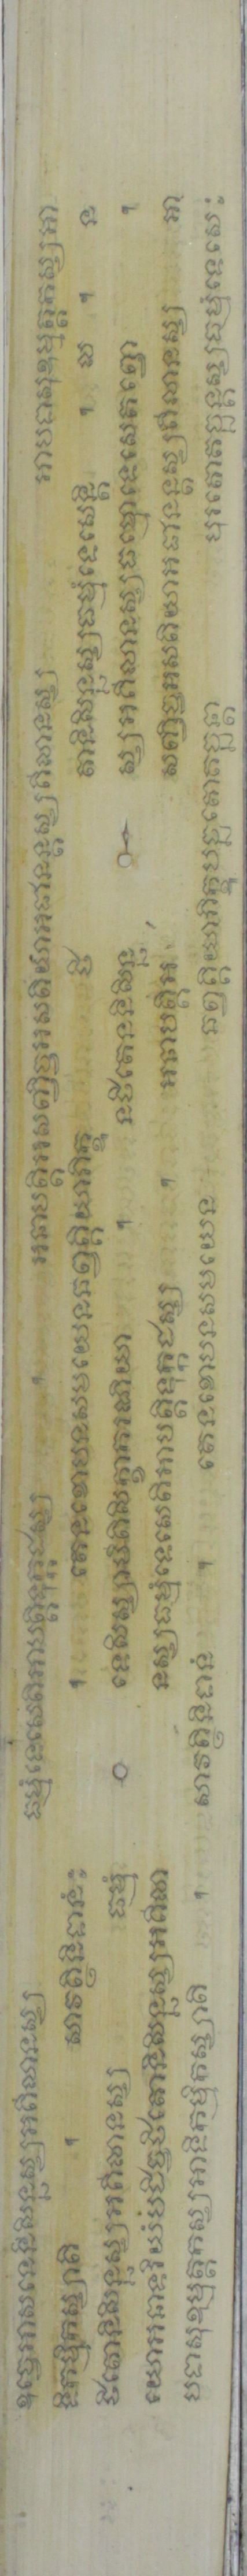 ឧច្ចេអាសនេនិសិន្នស្សអគិលានស្ស ធម្មំទេសេតិអាបត្តិទុក្កដស្ស ។ អនាបត្តិអសញ្ចិច្ចអសតិយាអជានន្តស្សគិលានស្ស អាបទាសុឧម្មត្តកស្សអា
ទិកម្មិកស្សាតិ ។ សាវត្ថិនិទានំ៖ ។ តេនខោបនសមយេនឆព្វគ្គិយាភិក្ខូ ឋិ តានិសិន្នស្សធម្មំទេសេន្តិ ។ ល ។ ន
ឋិតោនិសិន្នស្សអគិលានស្ស ធម្មំ ទេសិស្សាមីតិសិក្ខាករណីយា ។ នឋិតេននិសិន្ន ស្សអគិលានស្សធម្មោទេសេតព្វោ ។
យោអនាទរិយំបដិច្ចឋិតោនិសិន្នស្សអគិលា នស្សធម្មំទេសេតិអាបត្តិទុក្កដស្ស ។ អនាបត្តិអ សញ្ចិច្ចអសតិយាអជានន្តស្សគិលានស្ស អា
បទាសុឧម្មត្តកស្សអាទិកម្មិកស្សាតិ ។ សាវត្ថិនិទានំ ។ តេនខោបនសមយេន ឆព្វគ្គិយាភិក្ខូបច្ឆតោគច្ឆន្តា បុរតោគច្ឆន្តស្សធម្មំទេសេ៖